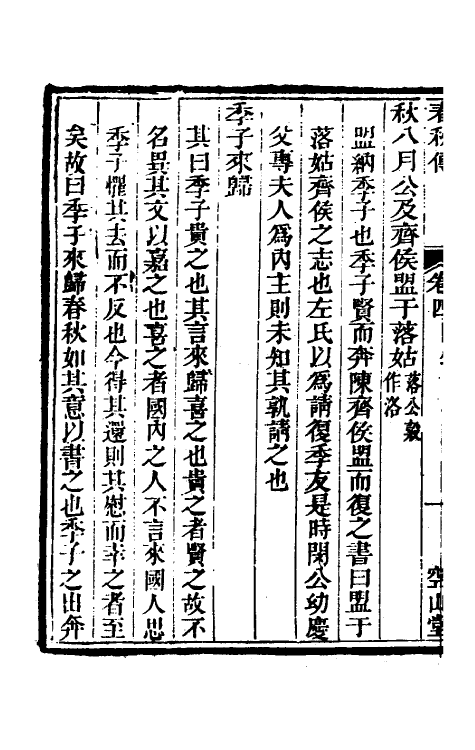 春秋傳 卷四 空山堂
秋八月公及齊侯盟于落姑落公穀作洛
盟納季子也季子賢而奔陳齊侯盟而復之書曰盟于
落姑齊侯之志也左氏以爲請復季友是時閔公幼慶
父專夫人爲內主則未知其孰請之也
季子來歸
其曰季子貴之也其言來歸喜之也貴之者賢之故不
名異其文以嘉之也喜之者國內之人不言來國人思
季子懼其去而不反也今得其還則其慰而幸之者至
矣故曰季子來歸春秋如其意以書之也季子之出奔